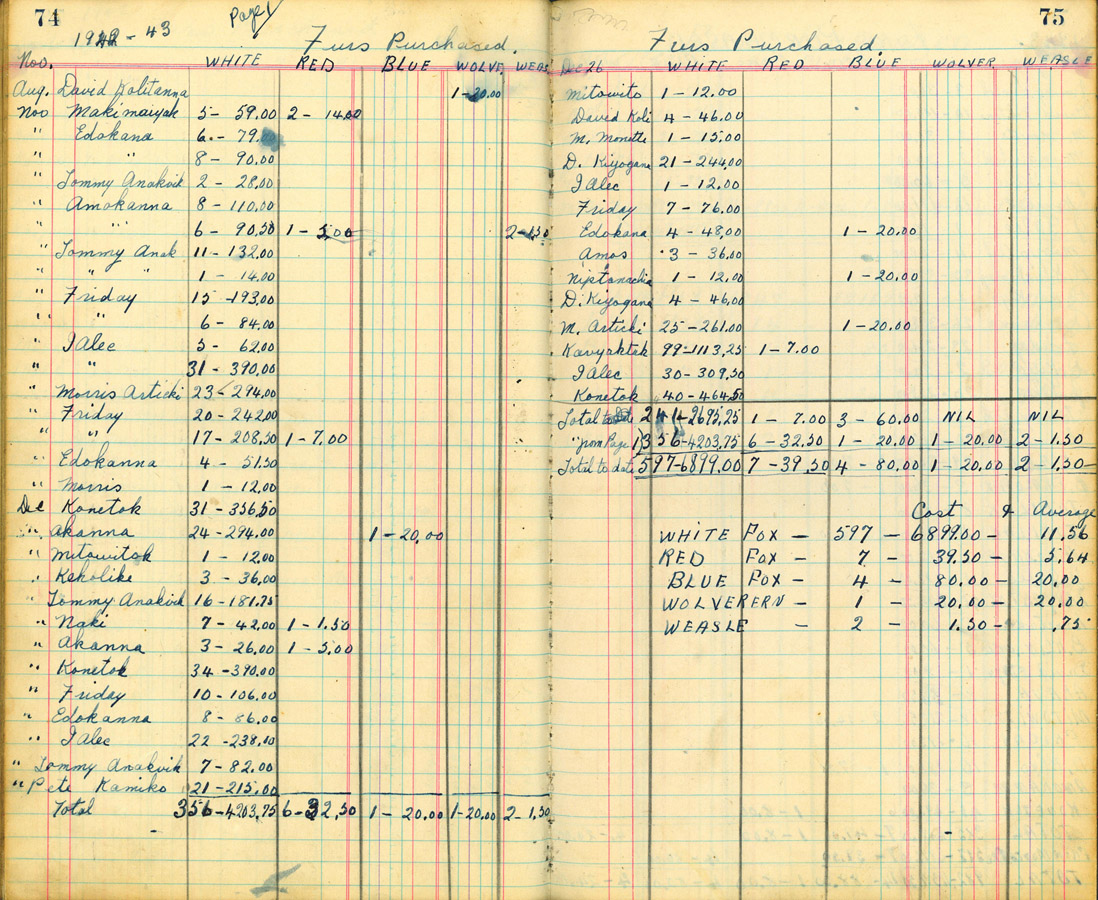 74
Page 1
1942 - 43 Furs Purchased.
Nov. WHITE RED BLUE WOLVE. WEAS
Aug. David Kolitanna 1-20.00
Nov Makimaiyak 5- 59.00 2- 14.00
" Edokana 6- 79.
" " 8- 90.00
" Tommy Anakvik 2- 28.00
" Amokanna 8- 110.00
" " 6- 90.50 1- 5.00 2-1.50
" Tommy Anak 11- 132.00
" " " 1- 14.00
" Friday 15 -193.00
" " 6- 84.00
" I Alec 5- 62.00
" " 31- 390.00
" Morris Articki 23- 294.00
" Friday 20- 242.00
" " 17- 208.50 1-7.00
" Edokanna 4- 51.50
" Morris 1- 12.00
Dec Konetok 31- 356.50
" Akanna 24-294.00 1-20.00
" Mitowitok 1- 12.00
" Keholike 3- 36.00
" Tommy Anakvik 16-181.75
" Naki 7- 42.00 1-1.50
" Akanna 3- 26.00 1-5.00
" Konetok 34-390.00
" Friday 10-106.00
" Edokanna 8-86.00
" I Alec 22 -238.
" Tommy Anakvik 7-82.00
" Pete Kamiko 21-215.00
Total 356-4203.75 6-32.50 1- 20.00 1-20.00 2- 1.50
75
Furs Purchased.
Dec 26 WHITE RED BLUE WOLVER. WEASLE
Mitowito 1- 12.00
David Koli 4- 46.00
M. Monette 1- 15.00
D. Kiyogana 21-244.00
I Alec 1- 12.00
Friday 7- 76.00
Edokana 4- 48.00 1-20.00
Amos 3- 36.00
1- 12.00 1-20.00
D. Kiyogana 4- 46.00
M. Articki 25-261.00 1-20.00
Kavyaktok 99-1113.25 1-7.00
I Alec 30-309.50
Konetok 40-464.50
Total 241-2695.25 1- 7.00 3- 60.00 NIL NIL
" from Page 1) 356-4203.75 6-32.50 1- 20.00 1-20.00 2-1.50
Total to date 597-6899.00 7-39.50 4- 80.00 1- 20.00 2-1.50
Cost & Average
WHITE FOX - 597 - 6899.00 - 11.56
RED FOX - 7 - 39.50 - 5.64
BLUE FOX - 4 - 80.00 - 20.00
WOLVERERN - 1 - 20.00 - 20.00
WEASLE - 2 - 1.50 - .75